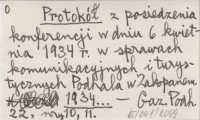 0
Protokół z posiedzenia
konferencji w dniu 6 kwiet-
nia 1934 r. w sprawach
komunikacyjnych i turys-
tycznych Podhala w Zakopanem
1934... — Gaz. Podh.
22, nr 10, 11.